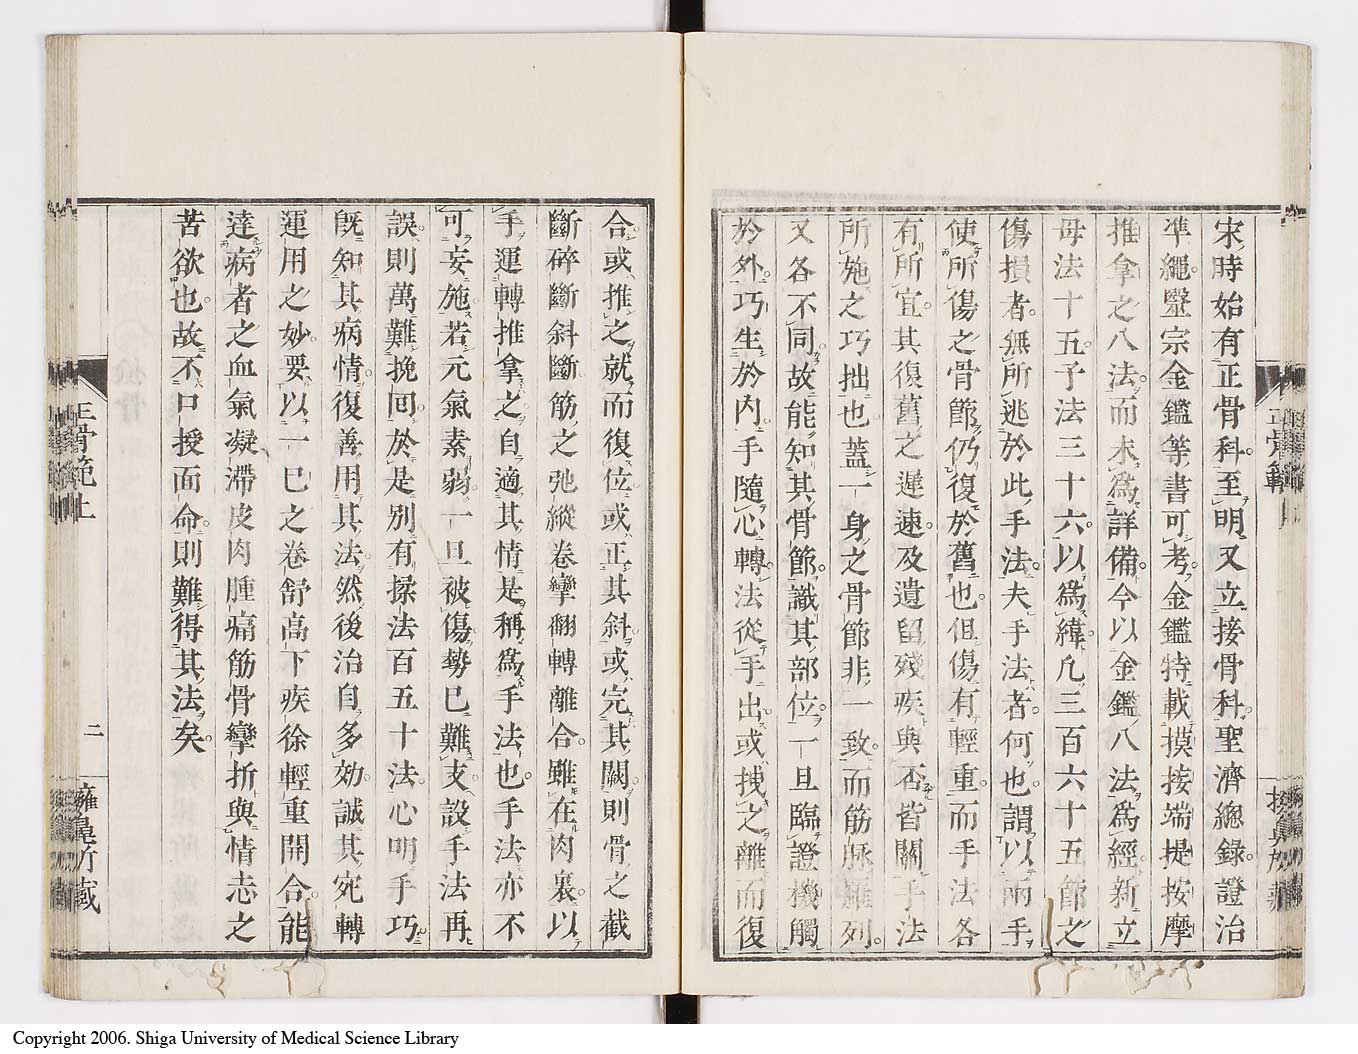 宋時始有正骨科。至明又立接骨科。聖濟總錄。證治
準繩。毉宗金鑑等書可考。金鑑特載摸按端提按摩
推拿之八法。而未爲詳備。今以金鑑八法爲經。新立
母法十五。子法三十六。以爲緯。凢三百六十五節之
傷損者。無所逃於此手法。夫手法者。何也。謂以兩手
使所傷之骨節仍復於舊也。但傷有輕重。而手法各
有所宜。其復舊之遲速。及遺留殘疾與否。皆關手法
所施之巧拙也。蓋一身之骨節非一致。而筋脉羅列。
又各不同。故能知其骨節。識其部位。一旦臨證。機觸
於外。巧生於内。手隨心轉。法從手出。或拽之離而復
合。或推之就而復位。或正其斜。或完其闕。則骨之截
斷碎斷斜斷。筋之弛縱卷攣翻轉離合。雖在肉裏。以
手運轉推拿之。自適其情。是稱爲手法也。手法亦不
可妄施。若元氣素弱。一旦被傷。勢已難支。設手法再
誤。則萬難挽回。於是別有揉法百五十法。心明手巧。
旣知其病情。復善用其法。然後治自多効。誠其宛轉
運用之妙。要以一已之卷舒高下疾徐輕重開合。能
達病者之血氣凝滯皮肉腫痛筋骨攣折與情志之
苦欲也。故不口授面命。則難得其法矣。
正骨範上
二